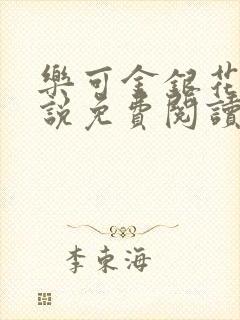 樂可金銀花
說免費閱讀
李東海